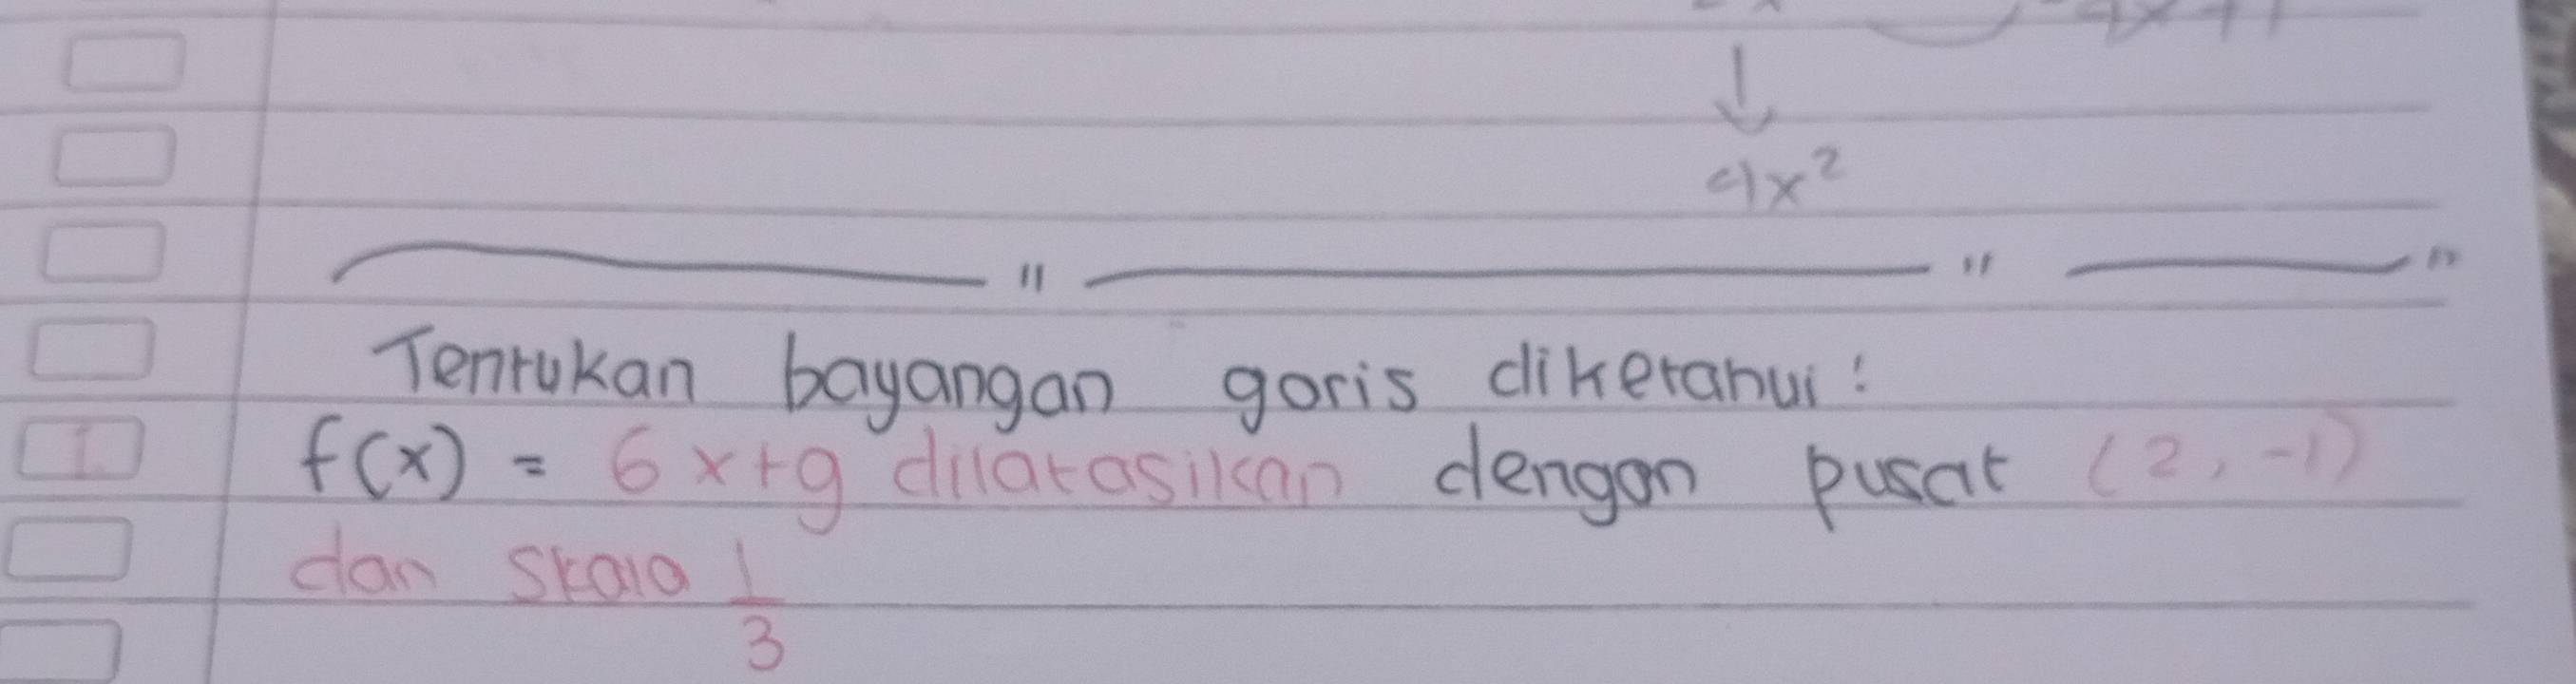 4x²
Tentukan bayangan garis diketahui :
1. f(x) = 6x+9 dilatasikan dengan pusat (2, -1)
dan skala 1/3